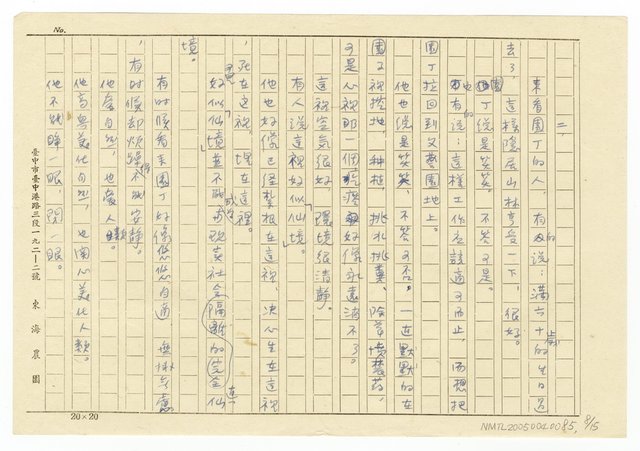 No.
二、
來看園丁的人，有的說：滿六十歲的生日過
去了，這樣隱居山林享受一下，很好。
園丁說是笑笑，不答可是。
也有的說：這樣工作應該適可而止，而想把
園丁拉回到文藝園地上。
他也說是笑笑，不答可否。一在默默的在
園子裡挖地、種植、挑水挑糞、除草噴農藥，
可是心裡那一個疙瘩好像永遠消不了。
這裡空氣很好，環境很清靜。
有人說這裡好似「仙境」。
他也好像已經紮根在這裡，決心生在這裡
死在這裡埋在這裡。
好似「仙境」並不就可說與社會隔離的完全仙
境。
有時候看來園丁好像悠悠自適
有時候却煩躁得不能安靜。
他愛自然，也愛人類。
他高興美化自然，也關心美化人類。
他不能睜一眼，閉一眼。
臺中市臺中港路三段一九二—二號 東海農園
20×20
NMTL20050040085, 8/15